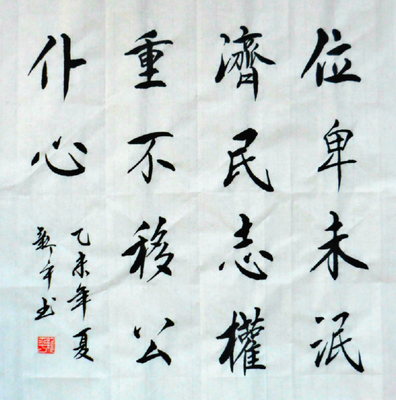 位卑未泯
濟民志權
重不移公
仆心
乙未年夏
平书